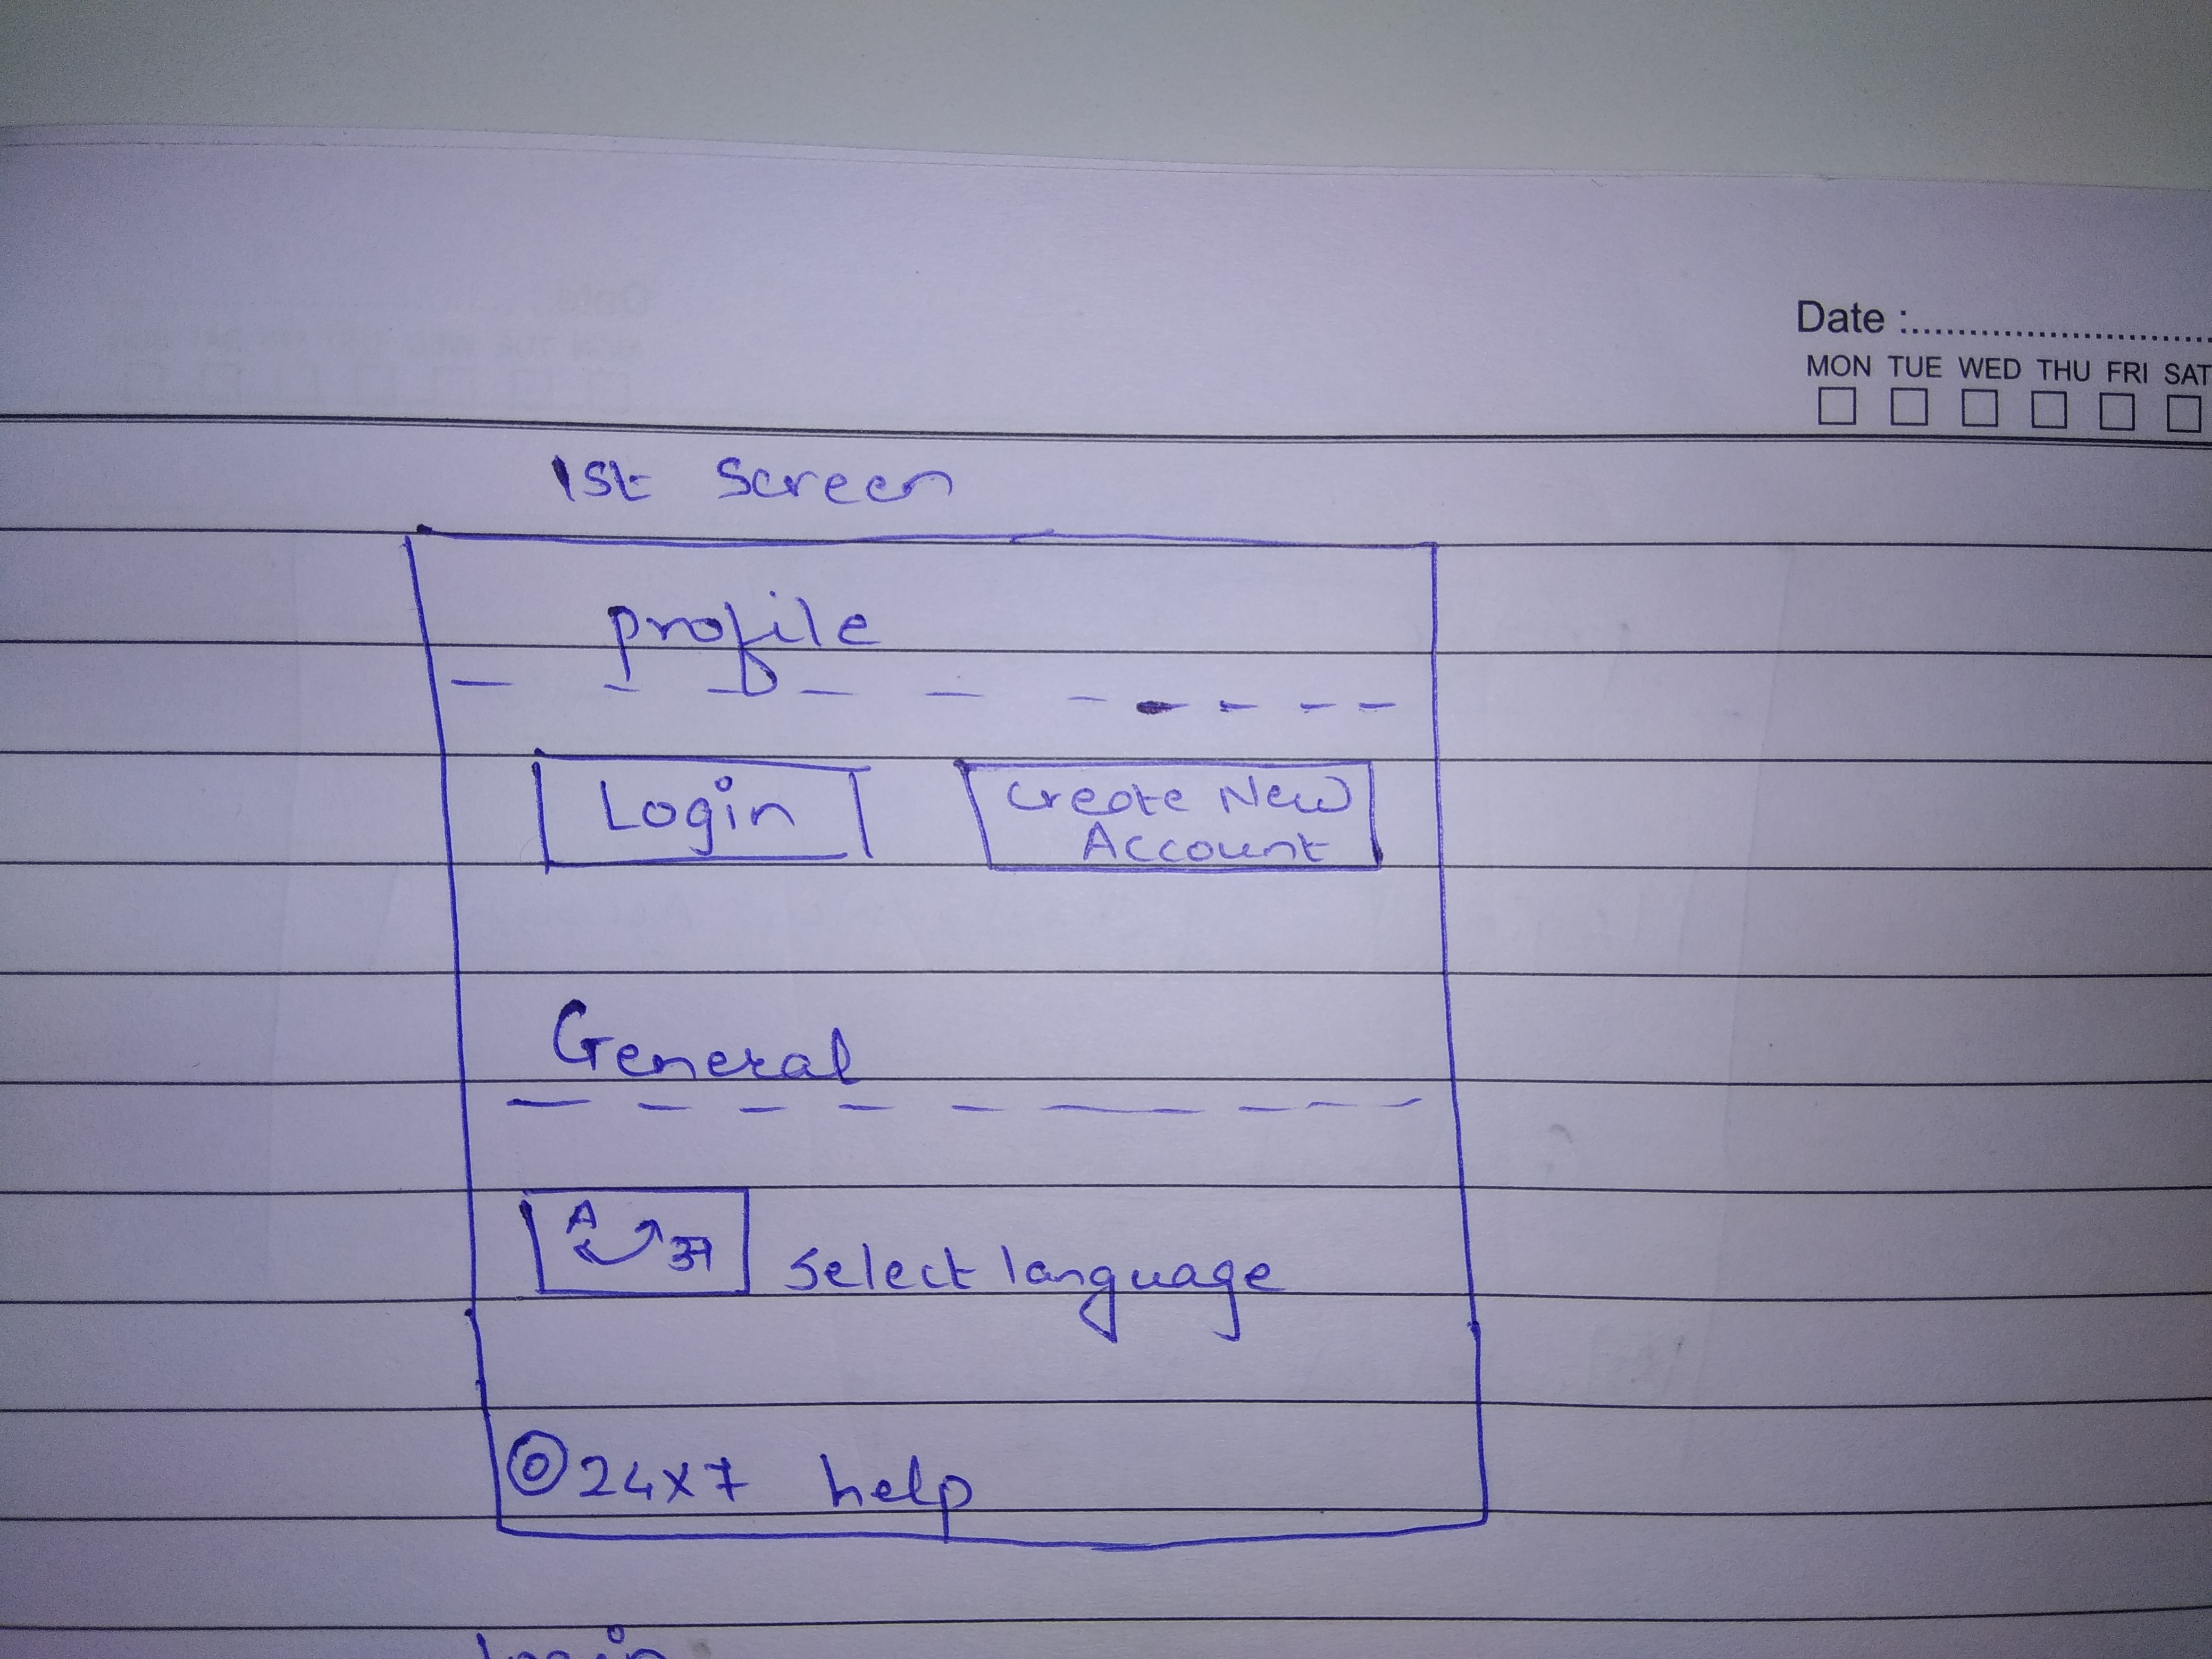 Date :..........................
MON TUE WED THU FRI SAT
1st Screen
profile
Login
Create New
Account
General
A अ
select language
24x7 help
Login